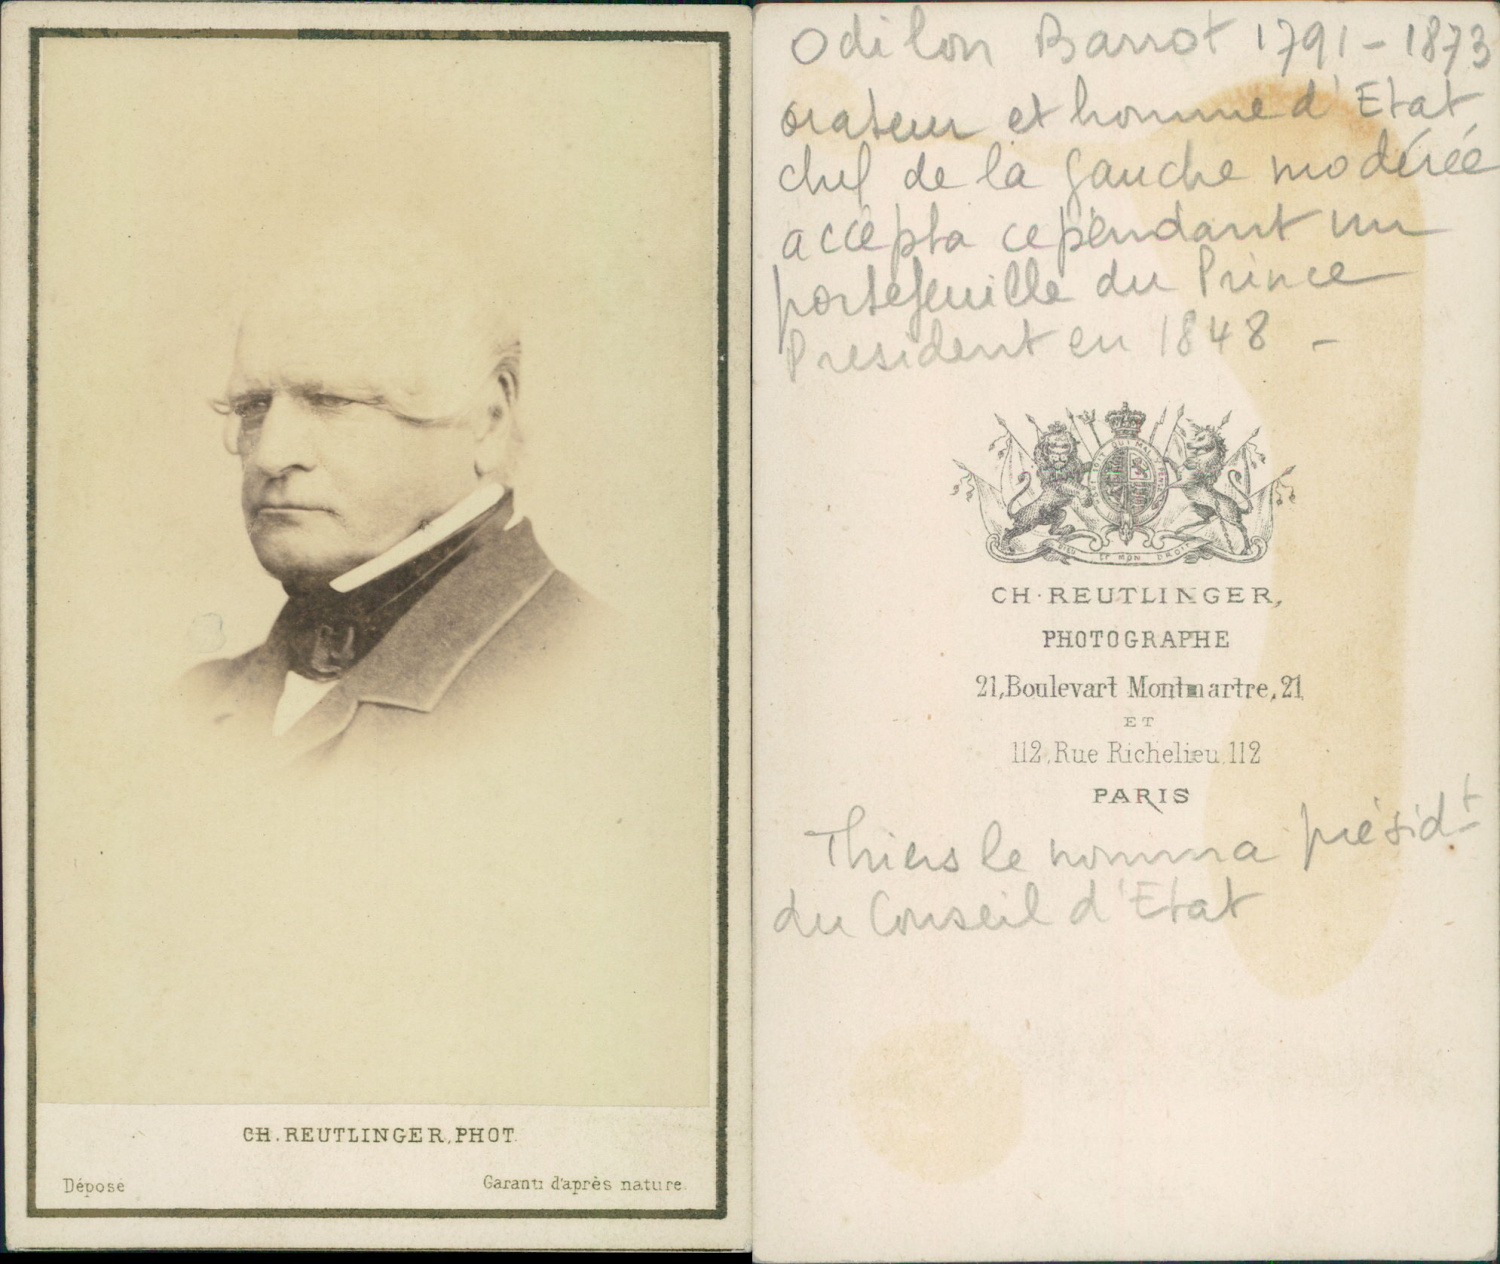 CH. REUTLINGER, PHOT.
Déposé
Garanti d'après nature.
Odilon Barrot 1791-1873
orateur et homme d'Etat
chef de la gauche modérée
accepta cependant un
portefeuille du Prince
President en 1848 -
HONI SOIT QUI MAL Y PENSE
DIEU ET MON DROIT
CH. REUTLINGER,
PHOTOGRAPHE
21, Boulevart Montmartre, 21
ET
112, Rue Richelieu, 112
PARIS
Thiers le nomma présidt
du Conseil d'Etat